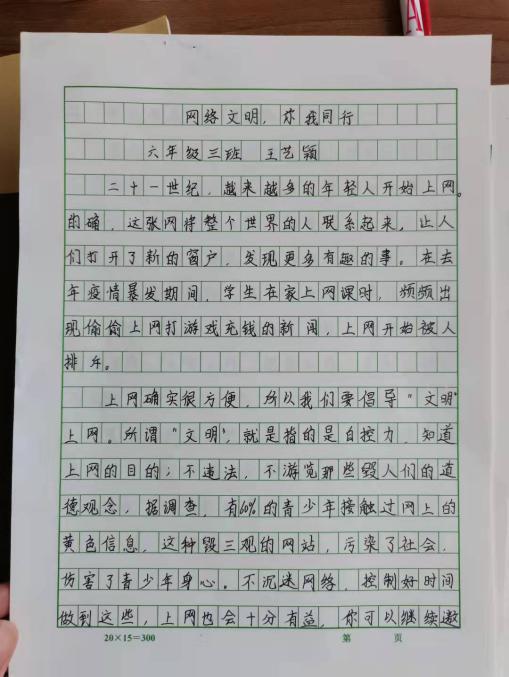 网络文明，你我同行
六年级三班 王艺颖
二十一世纪，越来越多的年轻人开始上网。
的确，这张网将整个世界的人联系起来，让人
们打开了新的窗户，发现更多有趣的事。在去
年疫情暴发期间，学生在家上网课时，频频出
现偷偷上网打游戏充钱的新闻，上网开始被人
排斥。
上网确实很方便，所以我们要倡导“文明”
上网。所谓“文明”，就是指的是自控力，知道
上网的目的；不违法，不游览那些毁人们的道
德观念，据调查，有60%的青少年接触过网上的
黄色信息，这种毁三观的网站，污染了社会，
伤害了青少年身心。不沉迷网络，控制好时间
做到这些，上网也会十分有益，你可以继续遨
20×15=300 第 页